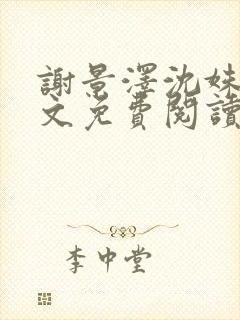 謝景澤沈妹
文免費閱讀
李中堂